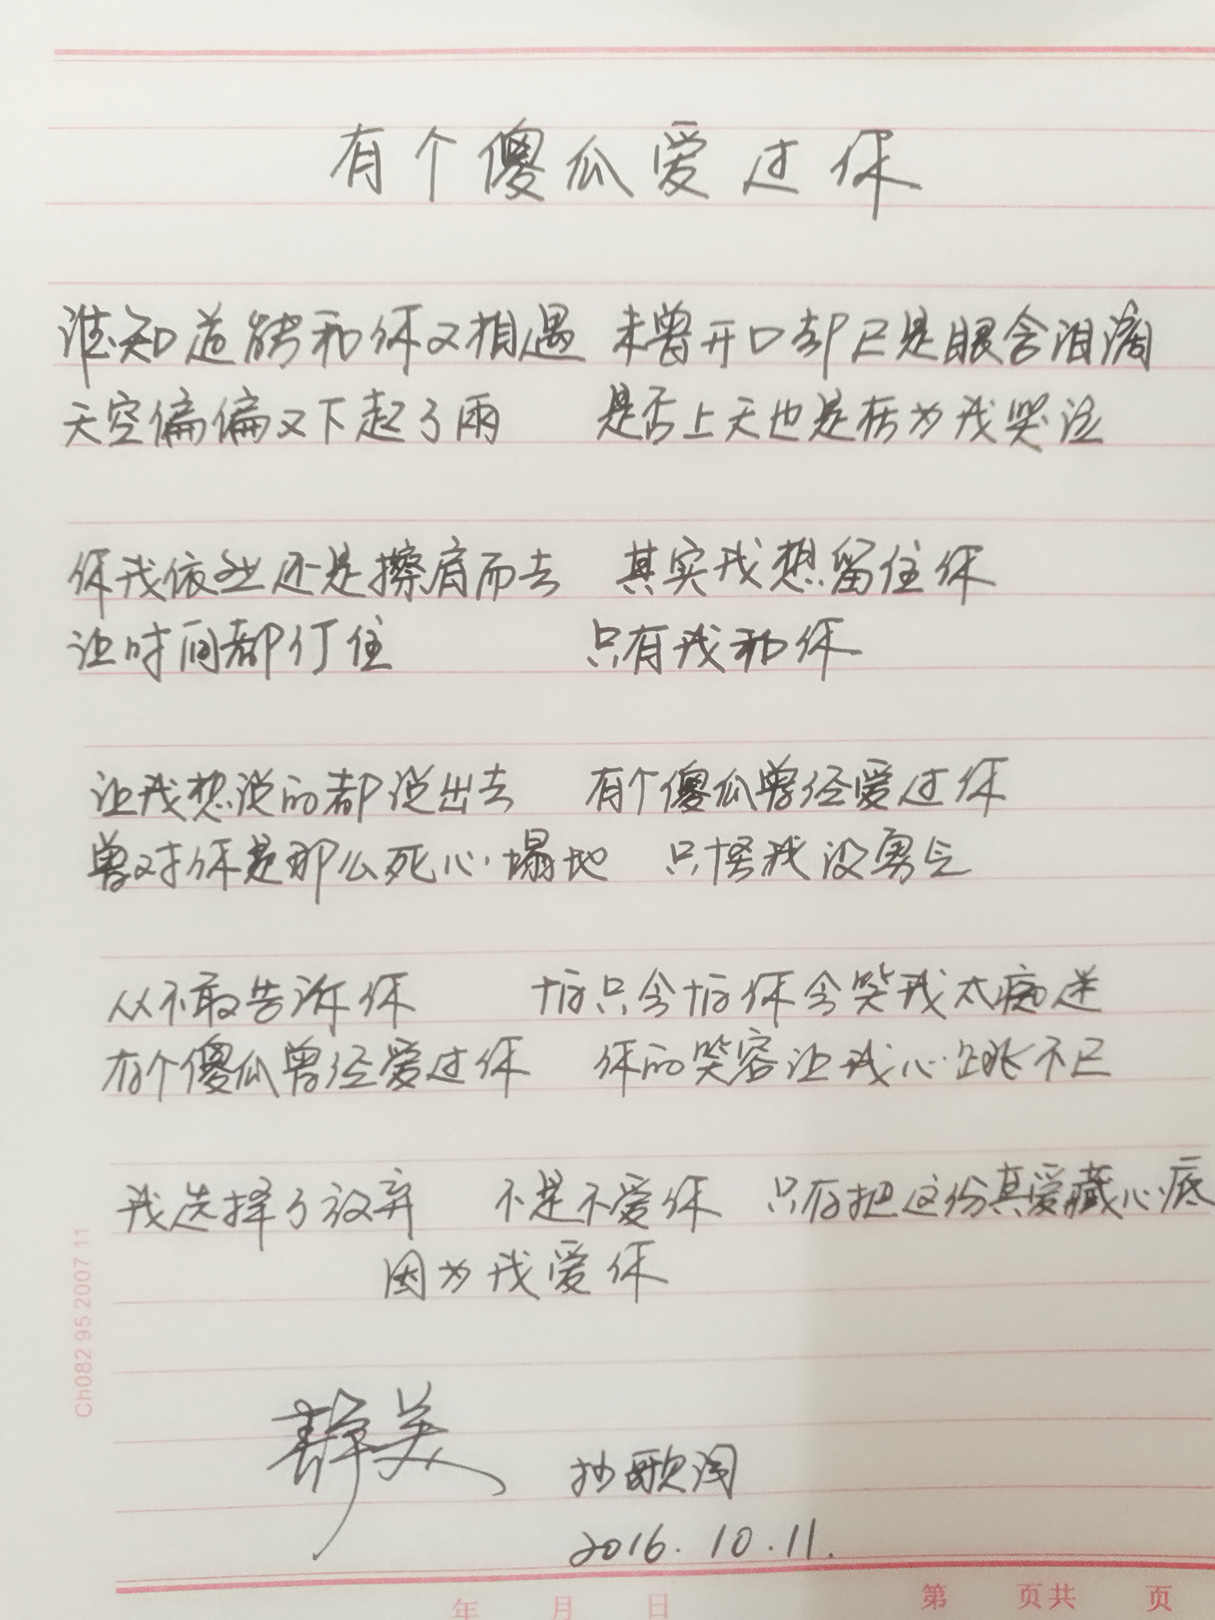 有个傻瓜爱过你
谁知道能和你又相遇 未曾开口却已是眼含泪滴
天空偏偏又下起了雨 是否上天也是在为我哭泣
你我依然还是擦肩而去 其实我想留住你
让时间都仃住 只有我和你
让我想说的都说出去 有个傻瓜曾经爱过你
曾对你是那么死心塌地 只怪我没勇气
从不敢告诉你 怕只会怕你会笑我太痴迷
有个傻瓜曾经爱过你 你的笑容让我心跳不已
我选择了放弃 不是不爱你 只有把这份真爱藏心底
因为我爱你
静美 抄歌词
2016.10.11.
Ch082 95 2007 11
年 月 日 第 页共 页